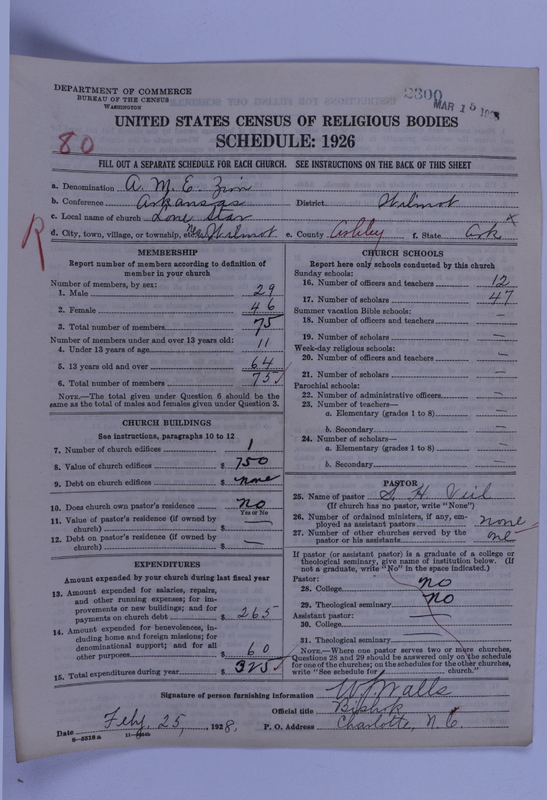 DEPARTMENT OF COMMERCE
BUREAU OF THE CENSUS
WASHINGTON
2300
MAR 15
UNITED STATES CENSUS OF RELIGIOUS BODIES
80
SCHEDULE: 1926
FILL OUT A SEPARATE SCHEDULE FOR EACH CHURCH. SEE INSTRUCTIONS ON THE BACK OF THIS SHEET
a. Denomination A. M. E. Zion
b. Conference Arkansas District Wilmot
c. Local name of church Lone Star
R
d. City, town, village, or township, etc. Wilmot e. County Ashley f. State Ark x
MEMBERSHIP
Report number of members according to definition of
member in your church
Number of members, by sex:
1. Male 29
2. Female 46
3. Total number of members 75
Number of members under and over 13 years old:
4. Under 13 years of age 11
5. 13 years old and over 64
6. Total number of members 75
NOTE.—The total given under Question 6 should be the
same as the total of males and females given under Question 3.
CHURCH BUILDINGS
See instructions, paragraphs 10 to 12
7. Number of church edifices 1
8. Value of church edifices $ 750
9. Debt on church edifices $ none
10. Does church own pastor's residence? no
Yes or No
11. Value of pastor's residence (if owned by
church) $ —
12. Debt on pastor's residence (if owned by
church) $ —
EXPENDITURES
Amount expended by your church during last fiscal year
13. Amount expended for salaries, repairs,
and other running expenses; for im-
provements or new buildings; and for
payments on church debt $ 265
14. Amount expended for benevolences, in-
cluding home and foreign missions; for
denominational support; and for all
other purposes $ 60
15. Total expenditures during year $ 325
CHURCH SCHOOLS
Report here only schools conducted by this church
Sunday schools:
16. Number of officers and teachers 12
17. Number of scholars 47
Summer vacation Bible schools:
18. Number of officers and teachers —
19. Number of scholars —
Week-day religious schools:
20. Number of officers and teachers —
21. Number of scholars —
Parochial schools:
22. Number of administrative officers —
23. Number of teachers—
a. Elementary (grades 1 to 8) —
b. Secondary —
24. Number of scholars—
a. Elementary (grades 1 to 8) —
b. Secondary —
PASTOR
25. Name of pastor S. H.
(If church has no pastor, write "None")
26. Number of ordained ministers, if any, em-
ployed as assistant pastors none
27. Number of other churches served by the
pastor or his assistants one
If pastor (or assistant pastor) is a graduate of a college or
theological seminary, give name of institution below. (If
not a graduate, write "No" in the space indicated.)
Pastor:
28. College no
29. Theological seminary no
Assistant pastor:
30. College —
31. Theological seminary —
NOTE.—Where one pastor serves two or more churches,
Questions 28 and 29 should be answered only on the schedule
for one of the churches; on the schedules for the other churches,
write "See schedule for church."
Signature of person furnishing information W J Walls
Official title Bishop
Date Feby. 25, 1928. P. O. Address Charlotte, N. C.
8—5518a